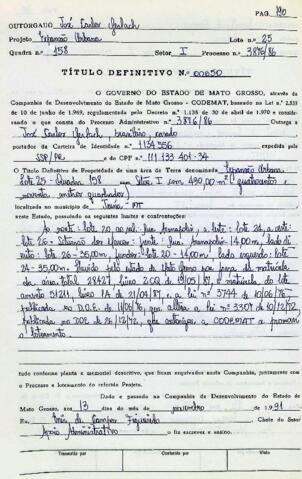 PAG. 190
OUTORGADO José Carlos Gerlach
Projeto Expansão Urbana Lote n.º 25
Quadra n.º 158 Setor I Processo n.º 3876/86
TÍTULO DEFINITIVO N.º 00650
O GOVERNO DO ESTADO DE MATO GROSSO, através da
Companhia de Desenvolvimento do Estado de Mato Grosso - CODEMAT, baseado na Lei n.º 2.033
de 10 de junho de 1.969, regulamentada pelo Decreto n.º 1.138 de 30 de abril de 1.970 e consi-
derando o que consta do Processo Administrativo n.º 3876/86 Outorga a
José Carlos Gerlach, brasileiro, casado
portador da Carteira de Identidade n.º 1134556 expedida pela
SSP/PR e do CPF n.º 111.133.401-34
O Título Definitivo de Propriedade de uma Área de Terra denominada Expansão Urbana
Lote 25 - Quadra 158 - Setor I com 490,00 m² (quatrocentos e
noventa metros quadrados)
localizada no município de MT
neste Estado, possuindo os seguintes limites e confrontações:
Ao norte: lote 20, ao sul: rua lote: lote 24, a oeste:
lote 26 - frente: rua 14,00m, lado di-
reito: lote 26 - 35,00m, fundos: lote 20 - 14,00m, lado esquerdo: lote
24 - 35,00m. pelo estado de Mato Grosso matrícula
da área total 28427 livro 2CQ de 19/05/87, e matrícula do lote
51211 livro 1A de 21/04/87, a lei nº 3744 de 10/06/76,
publicada no D.O.E. de 11/06/76, que altera a lei nº 3307 de 10/12/72,
publicada no DOE de 26/12/72, que autoriza a CODEMAT a promover
o loteamento.
tudo conforme planta e memorial descritivo, que ficam arquivados nesta Companhia, juntamente com
o Processo e loteamento do referido Projeto.
Dado e passado na Companhia de Desenvolvimento do Estado de
Mato Grosso, aos 13 dias do mês de novembro de 1.991
Eu, Inês de Campos Figueiredo Chefe do Setor
Apoio Administrativo o fiz escrever e assino.
Transcrito por
Conferido por
Visto